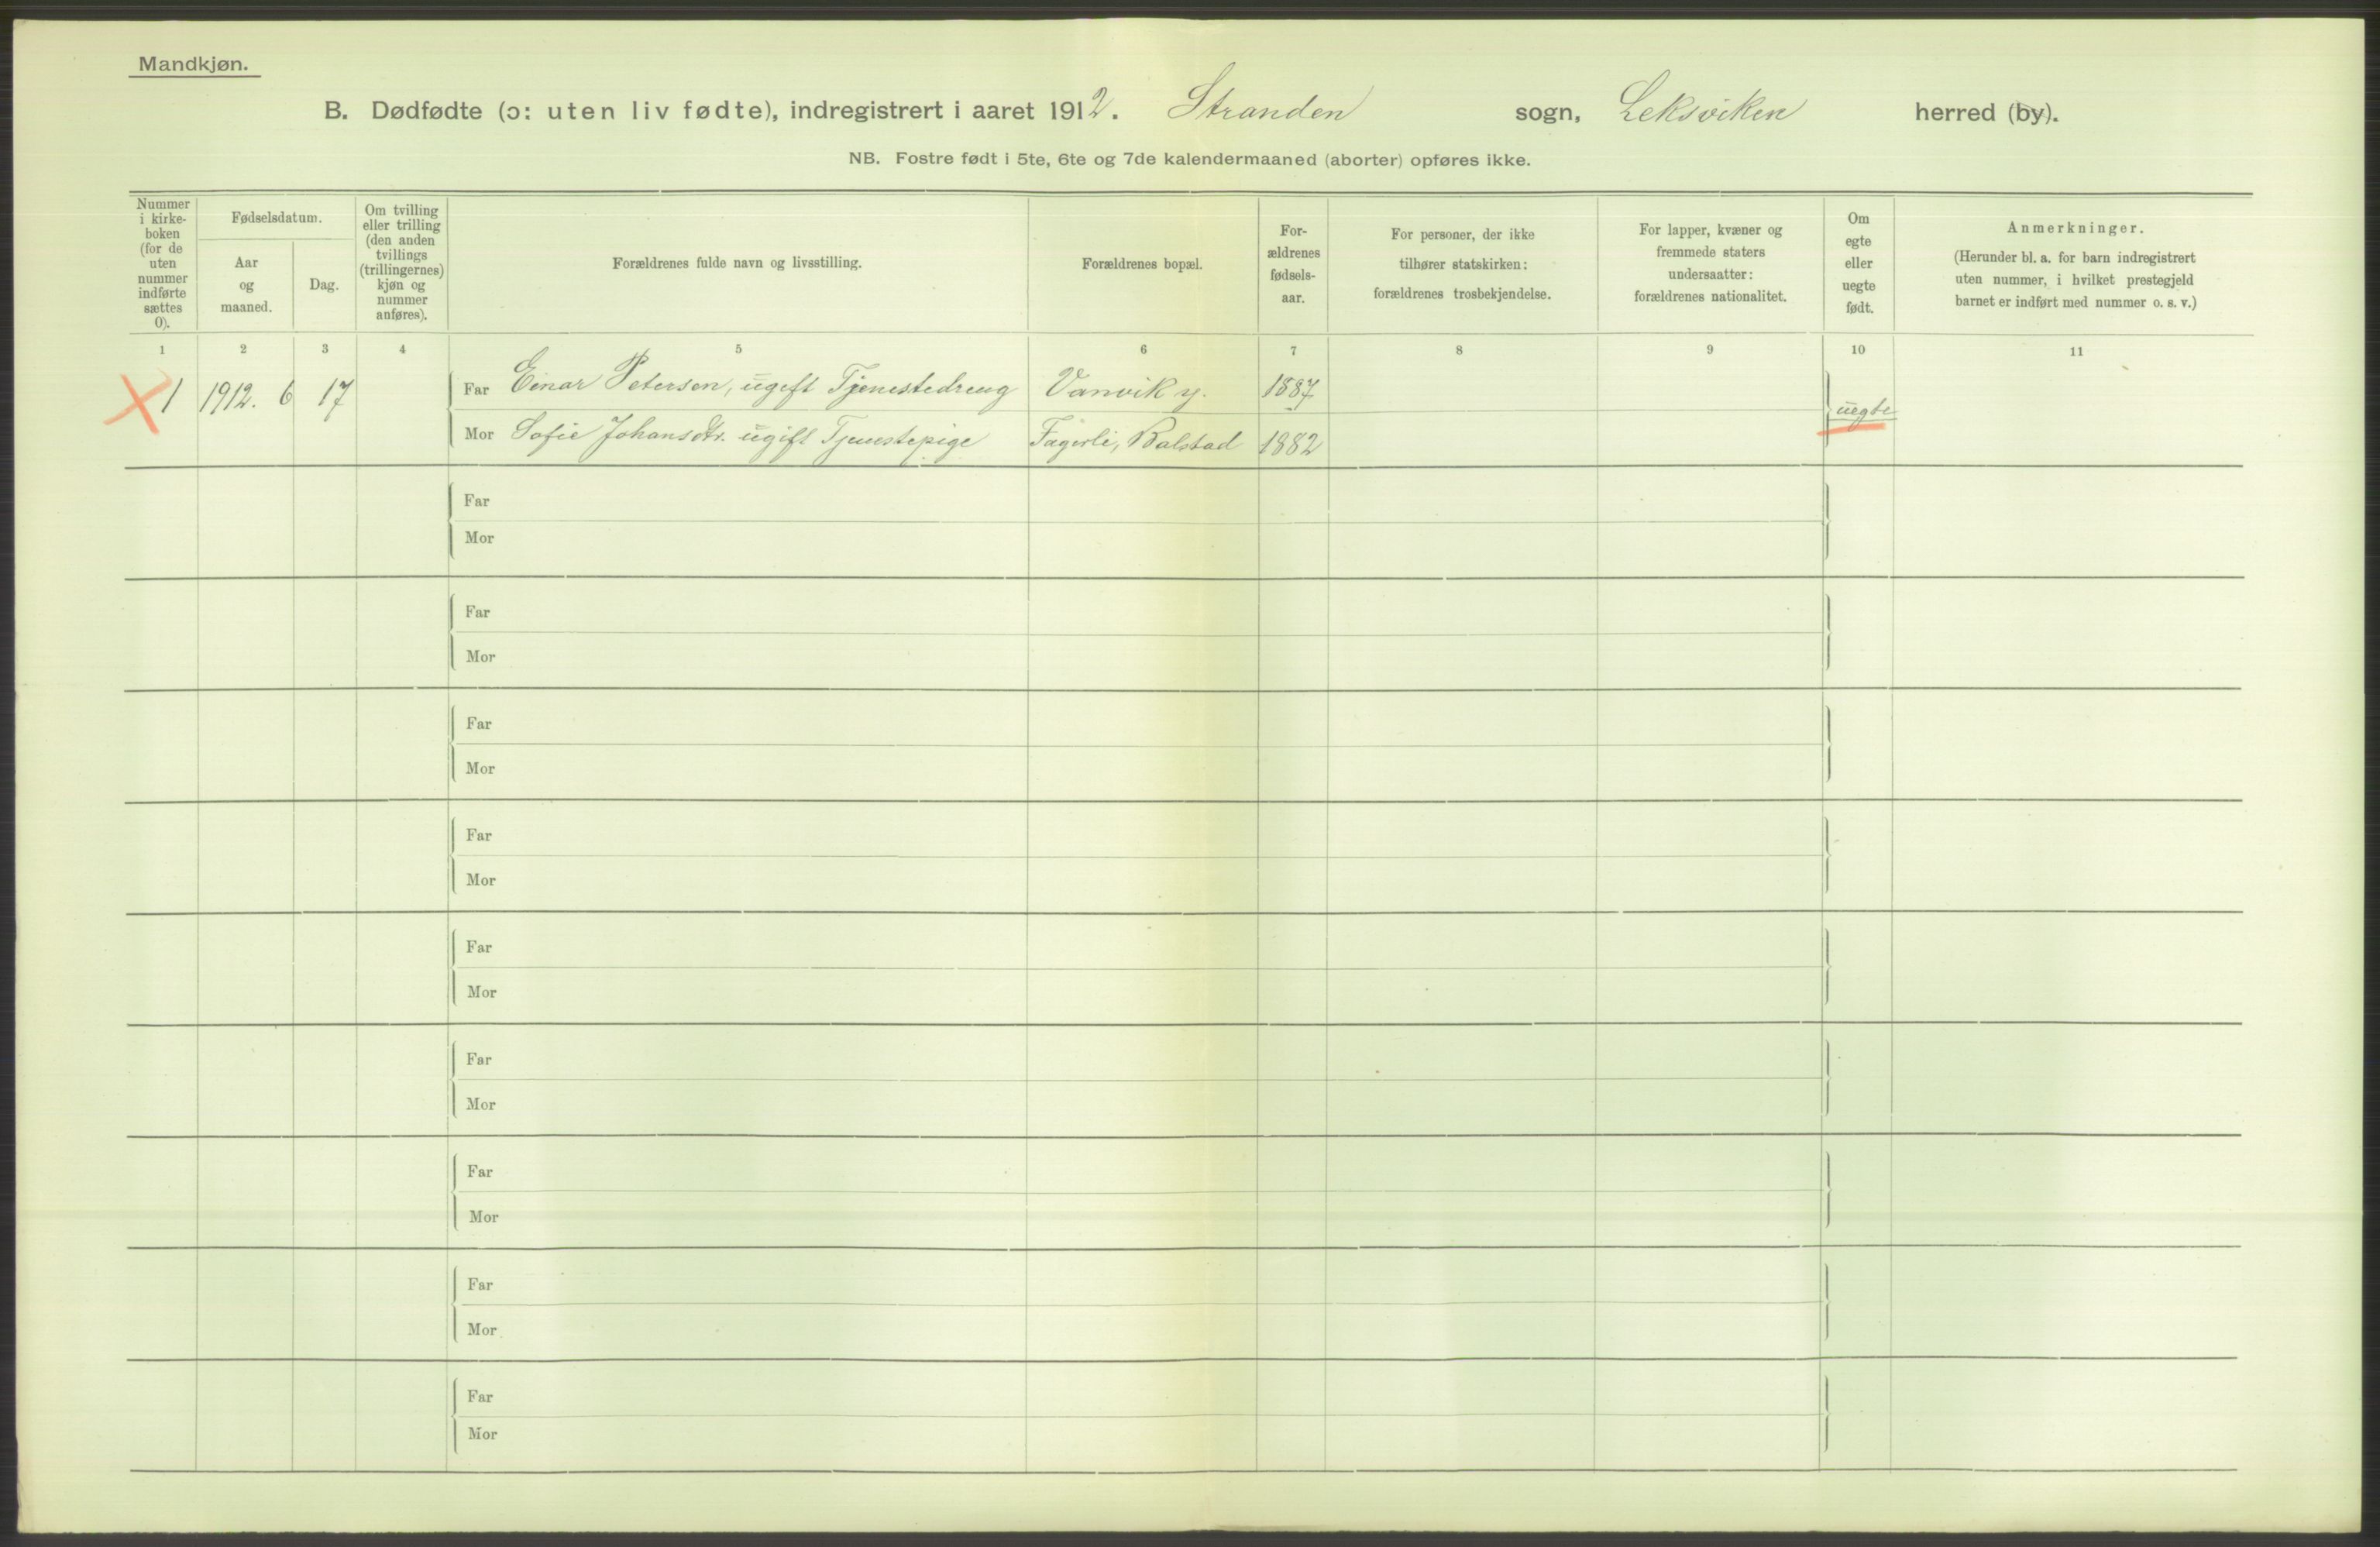 Mandkjøn.
B. Dødfødte (ɔ: uten liv fødte), indregistrert i aaret 1912. Stranden sogn, Leksviken herred (by).
NB. Fostre født i 5te, 6te og 7de kalendermaaned (aborter) opføres ikke.
Nummer
i kirke-
boken
(for de
uten
nummer
indførte
sættes
0).
Fødselsdatum.
Aar
og
maaned.
Dag.
Om tvilling
eller trilling
(den anden
tvillings
(trillingernes)
kjøn og
nummer
anføres).
Forældrenes fulde navn og livsstilling.
Forældrenes bopæl.
For-
ældrenes
fødsels-
aar.
For personer, der ikke
tilhører statskirken:
forældrenes trosbekjendelse.
For lapper, kvæner og
fremmede staters
undersaatter:
forældrenes nationalitet.
Om
egte
eller
uegte
født.
Anmerkninger.
(Herunder bl. a. for barn indregistrert
uten nummer, i hvilket prestegjeld
barnet er indført med nummer o. s. v.)
1 2 3 4 5 6 7 8 9 10 11
1 1912. 6 17
Far Einar Petersen, ugift Tjenestedreng Vanvik y. 1887
uegte
Mor Sofie Johansdtr. ugift Tjenestepige Fagerli, Balstad 1882
Far
Mor
Far
Mor
Far
Mor
Far
Mor
Far
Mor
Far
Mor
Far
Mor
Far
Mor
Far
Mor